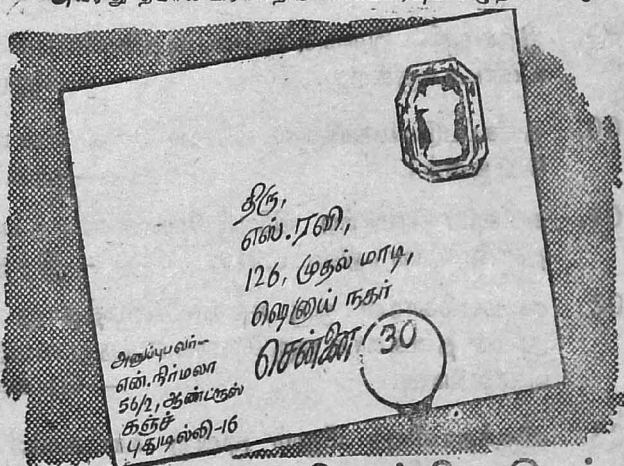 திரு,
எஸ். ரவி,
126, முதல் மாடி,
ஷெனாய் நகர்
சென்னை 30
அனுப்புபவர்—
என். நிர்மலா
56/2, ஆண்ட்ரூஸ்
கஞ்ச்
புதுடில்லி-16